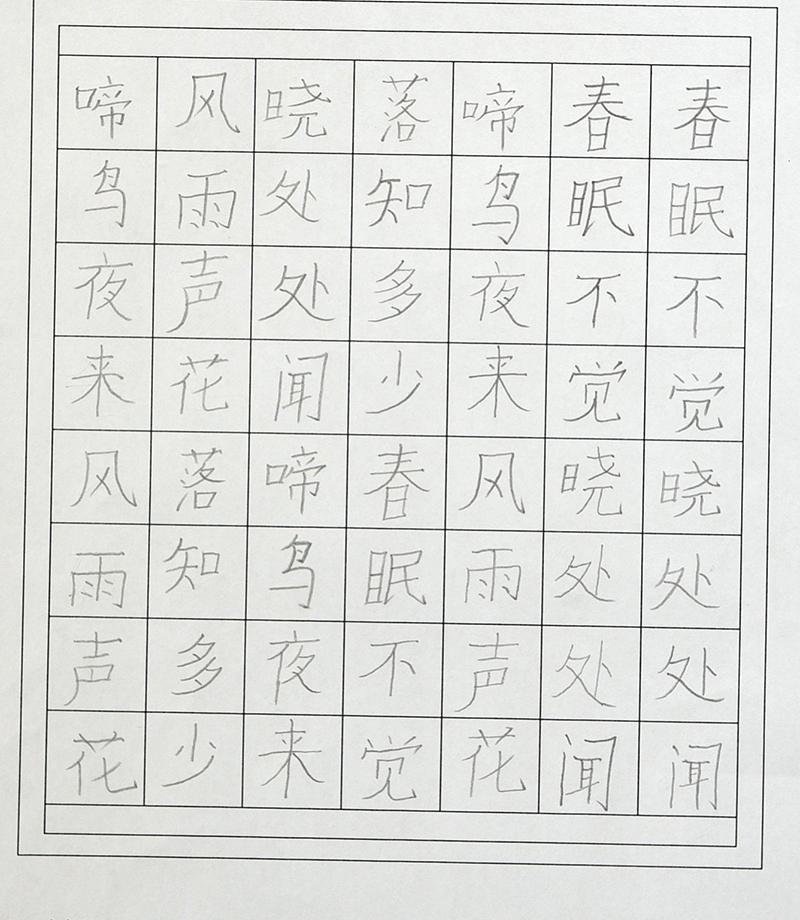 春眠不觉晓处处闻
春眠不觉晓处处闻
啼鸟夜来风雨声花
落知多少春眠不觉
晓处处闻啼鸟夜来
风雨声花落知多少
啼鸟夜来风雨声花